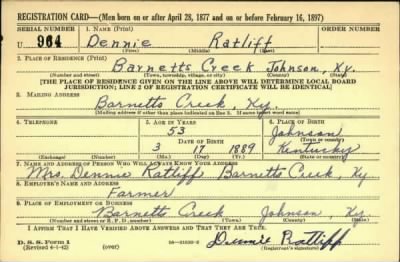 REGISTRATION CARD—(Men born on or after April 28, 1877 and on or before February 16, 1897)
SERIAL NUMBER 1. NAME (Print) ORDER NUMBER
U 964 Dennie Ratliff
(First) (Middle) (Last)
2. PLACE OF RESIDENCE (Print)
Barnetts Creek Johnson, Ky.
(Number and street) (Town, township, village, or city) (County) (State)
[THE PLACE OF RESIDENCE GIVEN ON THE LINE ABOVE WILL DETERMINE LOCAL BOARD
JURISDICTION; LINE 2 OF REGISTRATION CERTIFICATE WILL BE IDENTICAL]
3. MAILING ADDRESS
Barnetts Creek, Ky.
[Mailing address if other than place indicated on line 2. If same insert word same]
4. TELEPHONE 5. AGE IN YEARS 6. PLACE OF BIRTH
53 Johnson
DATE OF BIRTH (Town or county)
3 17 1889 Kentucky
(Exchange) (Number) (Mo.) (Day) (Yr.) (State or country)
7. NAME AND ADDRESS OF PERSON WHO WILL ALWAYS KNOW YOUR ADDRESS
Mrs. Dennie Ratliff Barnetts Creek, Ky
8. EMPLOYER'S NAME AND ADDRESS
Farmer
9. PLACE OF EMPLOYMENT OR BUSINESS
Barnetts Creek Johnson, Ky.
(Number and street or R. F. D. number) (Town) (County) (State)
I AFFIRM THAT I HAVE VERIFIED ABOVE ANSWERS AND THAT THEY ARE TRUE.
D. S. S. Form 1
(Revised 4-1-42) (over) Dennie Ratliff
(Registrant's signature)